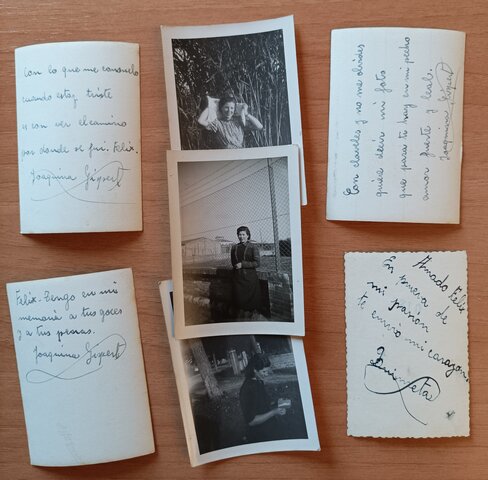 Con lo que me consuelo
cuando estoy triste
es con ver el camino
por donde se fué. Felix.
Joaquina Gispert
Felix-Tengo en mi
memoria a tus goces
y a tus penas.
Joaquina Gispert
Con claveles y no me olvides
quise decir mi foto
que para ti hay en mi pecho
amor fuerte y leal.
Joaquina Gispert
Amado Felix
En prueba de
mi pasion
te envio mi corazon
Quimeta